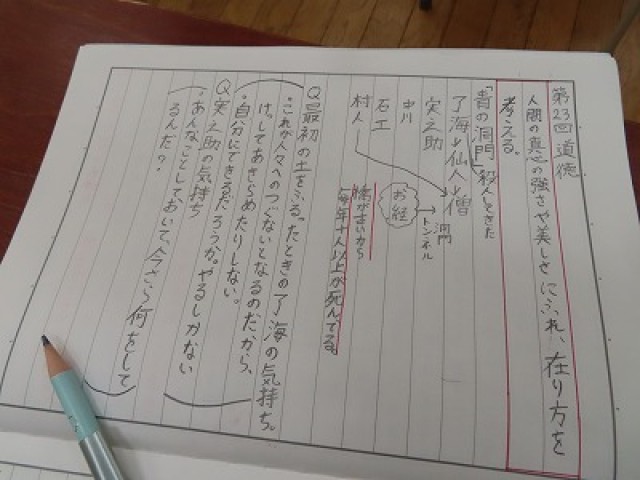 第23回 道徳
人間の真心の強さや美しさにふれ、在り方を
考える。
「青の洞門」殺人しときた
了海→仙人→僧 洞門
実之助
中川
石工
村人
お経
トンネル
道がせまいから
毎年十人以上が死んでる。
Q最初の土をふるったときの了海の気持ち。
・これが人々へのつぐないとなるのだから、
けっしてあきらめたりしない。
・自分にできるだろうか。やるしかない
Q実之助の気持ち
・あんなことしておいて、今さら何をして
るんだ?